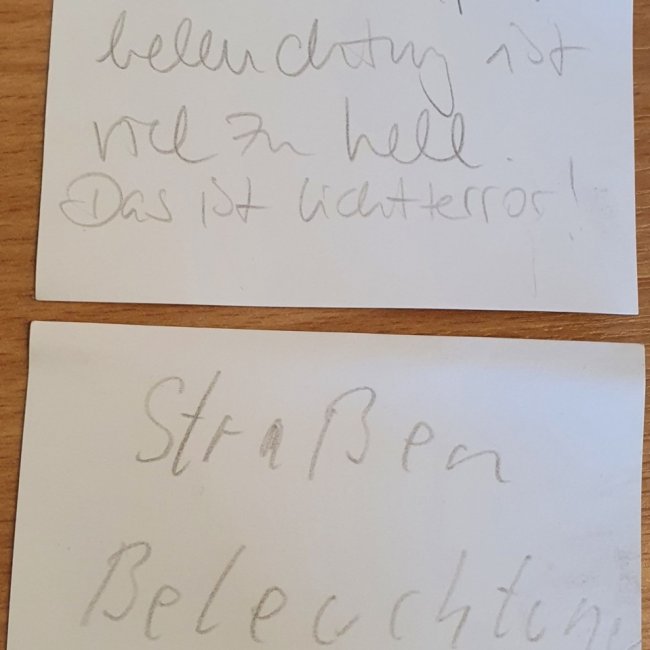 beleuchtung ist
viel zu hell.
Das ist Lichtterror!
Straßen
Beleuchtung